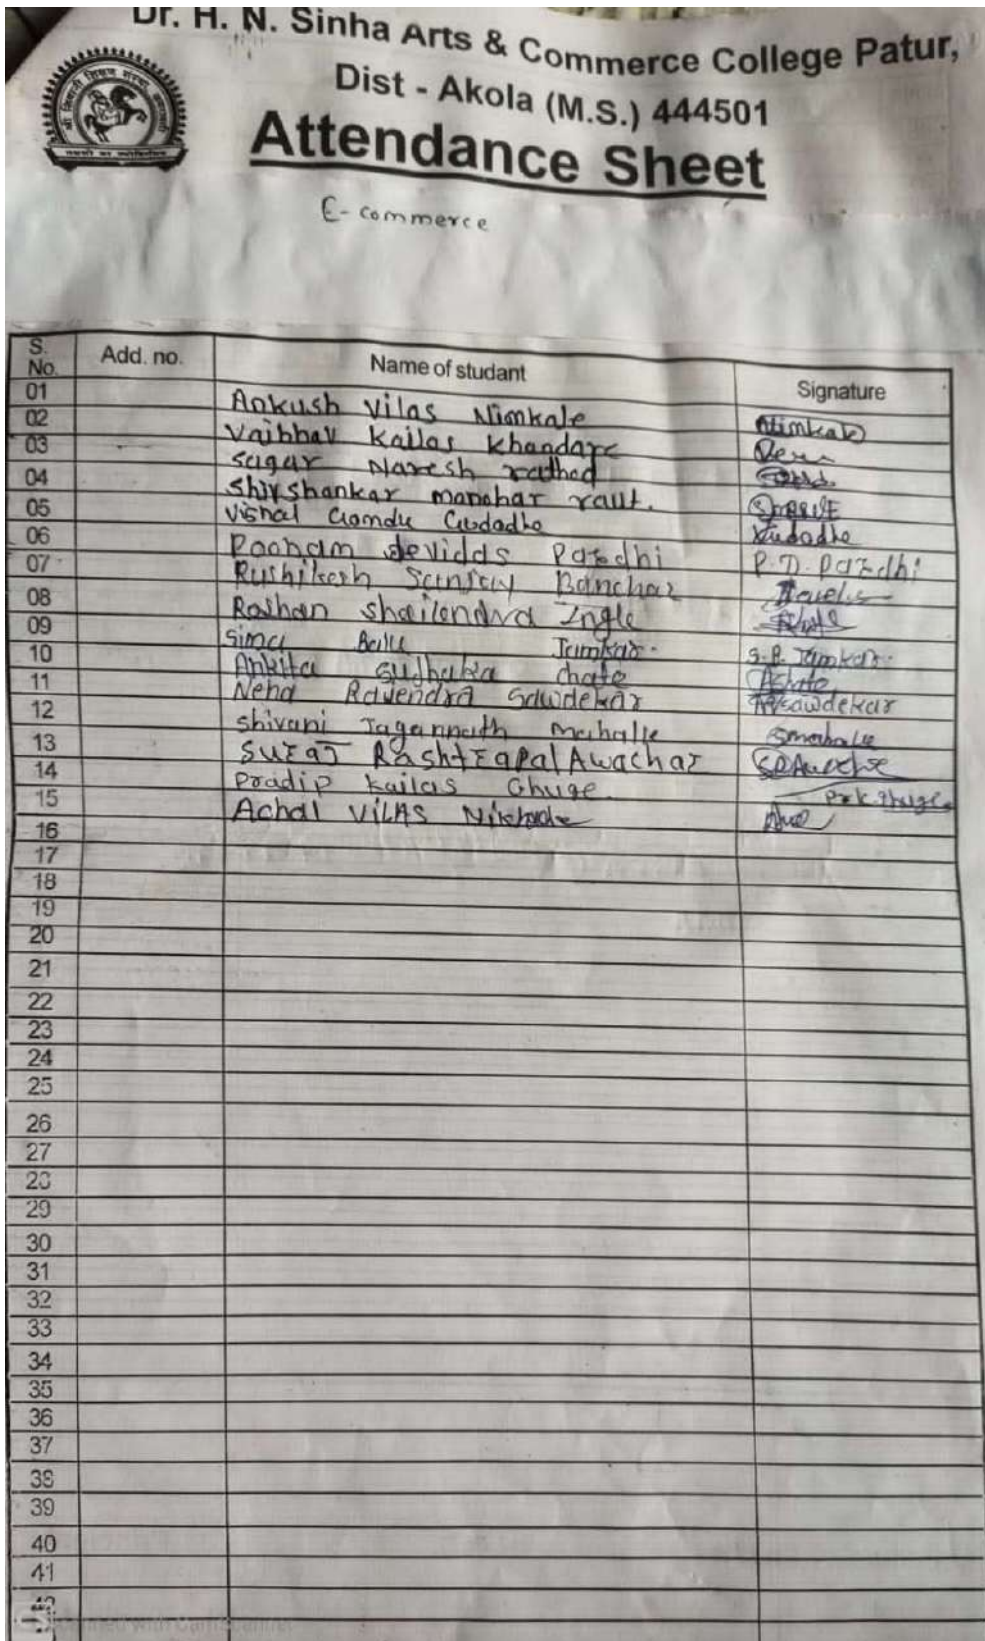 Dr. H. N. Sinha Arts & Commerce College Patur,
Dist - Akola (M.S.) 444501
Attendance Sheet
E-commerce
S. No. Add. no. Name of studant Signature
01 Ankush Vilas Nimkale Nimkale
02 Vaibhav Kailas Khandare
03 Sagar Naresh rathod
04 Shivshankar manohar raut.
05 Vishal Gomdu Gudadhe Gudadhe
06 Poonam devidas Pardhi P.D. Pardhi
07 Rushikesh Sanjay Banchar
08 Roshan Shailendra Ingle
09 Sima Balu Jamkar. S.B. Jamkar.
10 Ankita Sudhaka chate Achate
11 Neha Ravendra Sawdekar Sawdekar
12 Shivani Jagannath mahalle Smahalle
13 Suraj Rashtrapal Awachar
14 Pradip Kailas Ghuge. P.K. Ghuge
15 Achal VILAS
16
17
18
19
20
21
22
23
24
25
26
27
28
29
30
31
32
33
34
35
36
37
38
39
40
41
42
CS Scanned with CamScanner